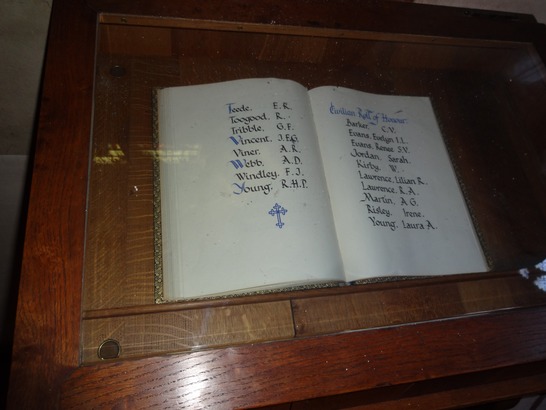 Teede. E.R.
Toogood. R.
Tribble. G.F.
Vincent. J.E.G.
Viner. A.R.
Webb. A.D.
Windley. F.J.
Young. R.H.P.
Civilian Roll of Honour
Barker. C.V.
Evans. Evelyn I.L.
Evans. Renee S.V.
Jordan. Sarah.
Kirby. W.
Lawrence. Lilian R.
Lawrence. R.A.
Martin. A.G.
Risley. Irene.
Young. Laura A.